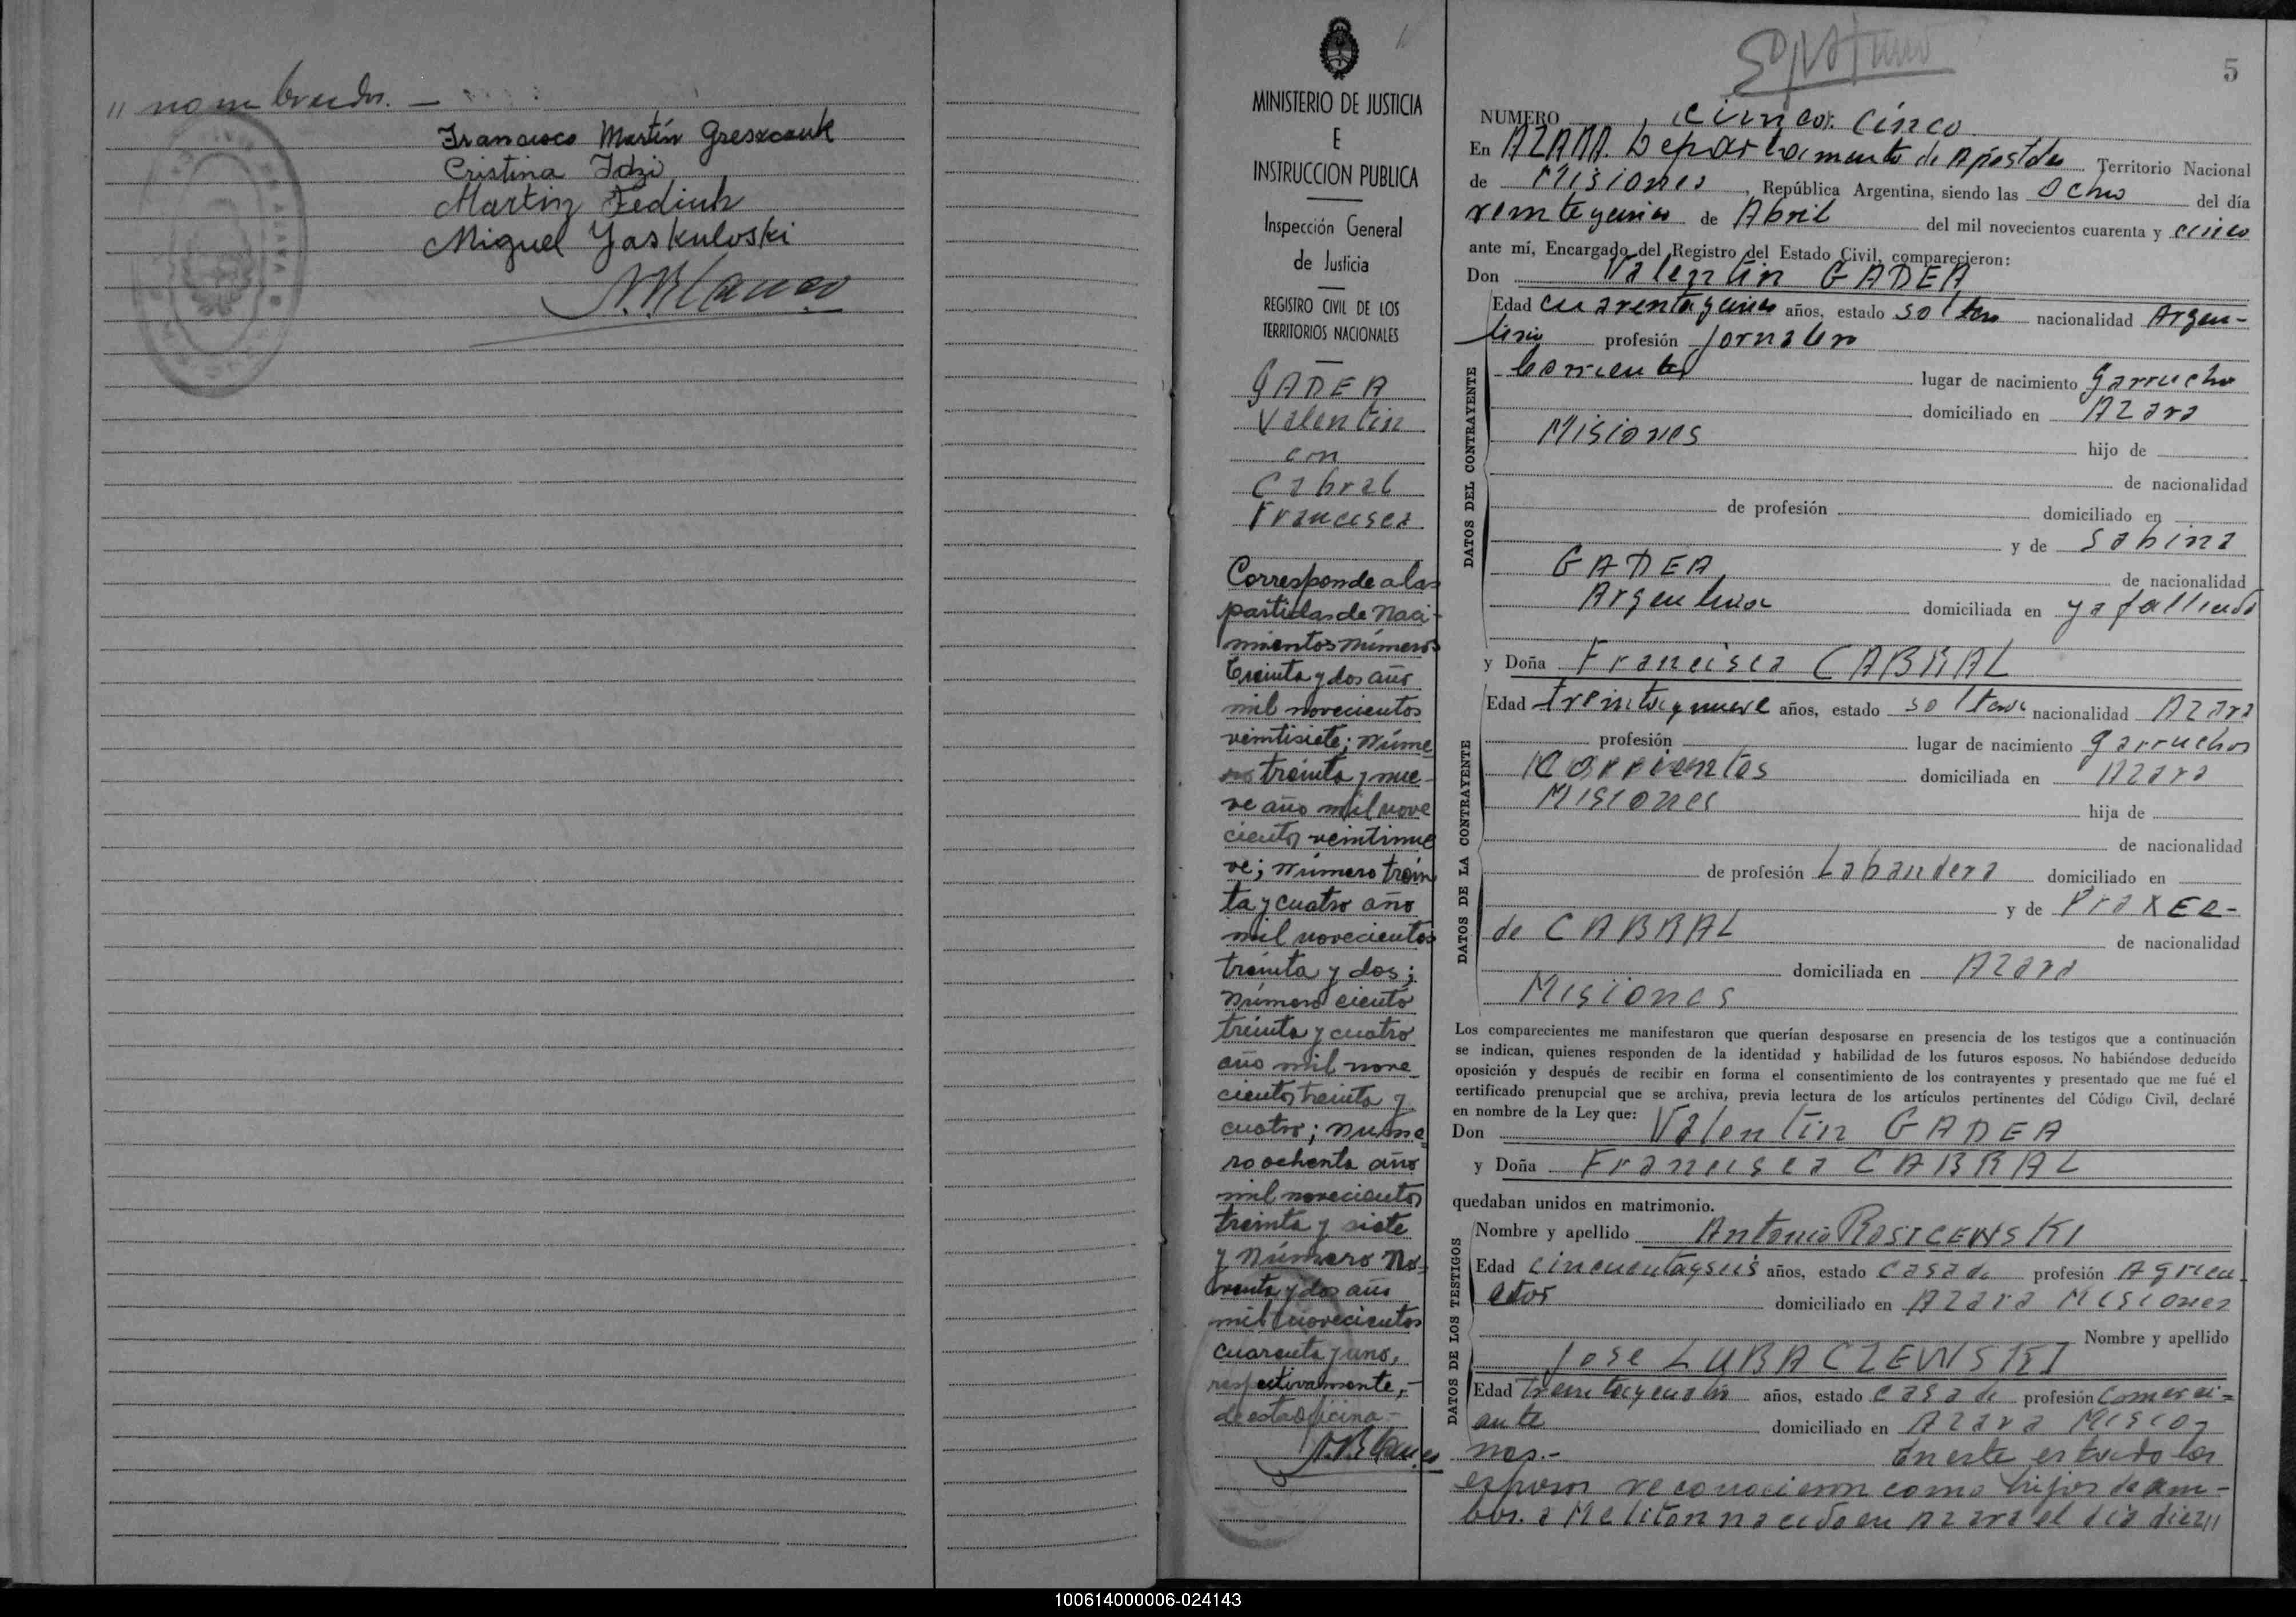 " nombrados. —
Francisco Martín Greszczuk
Cristina Idzi
Martin Fediuk
Miguel Jaskuloski
N. Blanco
MINISTERIO DE JUSTICIA
E
INSTRUCCION PUBLICA
Inspección General
de Justicia
REGISTRO CIVIL DE LOS
TERRITORIOS NACIONALES
GADEA
Valentin
con
Cabral
Francisca
Corresponde a las
partidas de Naci-
mientos números
treinta y dos año
mil novecientos
veintisiete; núme
ro treinta y nue-
ve año mil nove
cientos veintinue
ve; número trein
ta y cuatro año
mil novecientos
treinta y dos;
número ciento
treinta y cuatro
año mil nove-
cientos treinta y
cuatro; núme-
ro ochenta año
mil novecientos
treinta y siete
y número no-
venta y dos año
mil novecientos
cuarenta y uno,
respectivamente,-
de esta oficina-
N. Blanco
5
NUMERO cinco: cinco
En AZARA. Departamento de Apostoles Territorio Nacional
de Misiones, República Argentina, siendo las ocho del día
veintiseis de Abril del mil novecientos cuarenta y cinco
ante mí, Encargado del Registro del Estado Civil, comparecieron:
Don Valentin GADEA
DATOS DEL CONTRAYENTE
Edad cuarenta y cinco años, estado soltero nacionalidad Argen-
tino profesión jornalero
Corrientes lugar de nacimiento Garruchos
domiciliado en Azara
Misiones hijo de
de nacionalidad
de profesión domiciliado en
y de Sabina
GADEA de nacionalidad
Argentina domiciliada en ya fallecida
y Doña Francisca CABRAL
DATOS DE LA CONTRAYENTE
Edad treinta y nueve años, estado soltera nacionalidad Azara
profesión lugar de nacimiento Garruchos
Corrientes domiciliada en Azara
Misiones hija de
de nacionalidad
de profesión Labandera domiciliado en
y de Praxee-
de CABRAL de nacionalidad
domiciliada en Azara
Misiones
Los comparecientes me manifestaron que querían desposarse en presencia de los testigos que a continuación
se indican, quienes responden de la identidad y habilidad de los futuros esposos. No habiéndose deducido
oposición y después de recibir en forma el consentimiento de los contrayentes y presentado que me fué el
certificado prenupcial que se archiva, previa lectura de los artículos pertinentes del Código Civil, declaré
en nombre de la Ley que:
Don Valentin GADEA
y Doña Francisca CABRAL
quedaban unidos en matrimonio.
DATOS DE LOS TESTIGOS
Nombre y apellido Antonio ROSICEWSKI
Edad cincuenta y seis años, estado casado profesión Agricu-
ltor domiciliado en Azara Misiones
Nombre y apellido
Jose LUBACZEWSKI
Edad treinta y cuatro años, estado casado profesión Comerci=
ante domiciliado en Azara Misio-
nes.- En este estado los
esposos reconocieron como hijos de am-
bos. a Meliton nacido en Azara el dia diez"
100614000006-024143